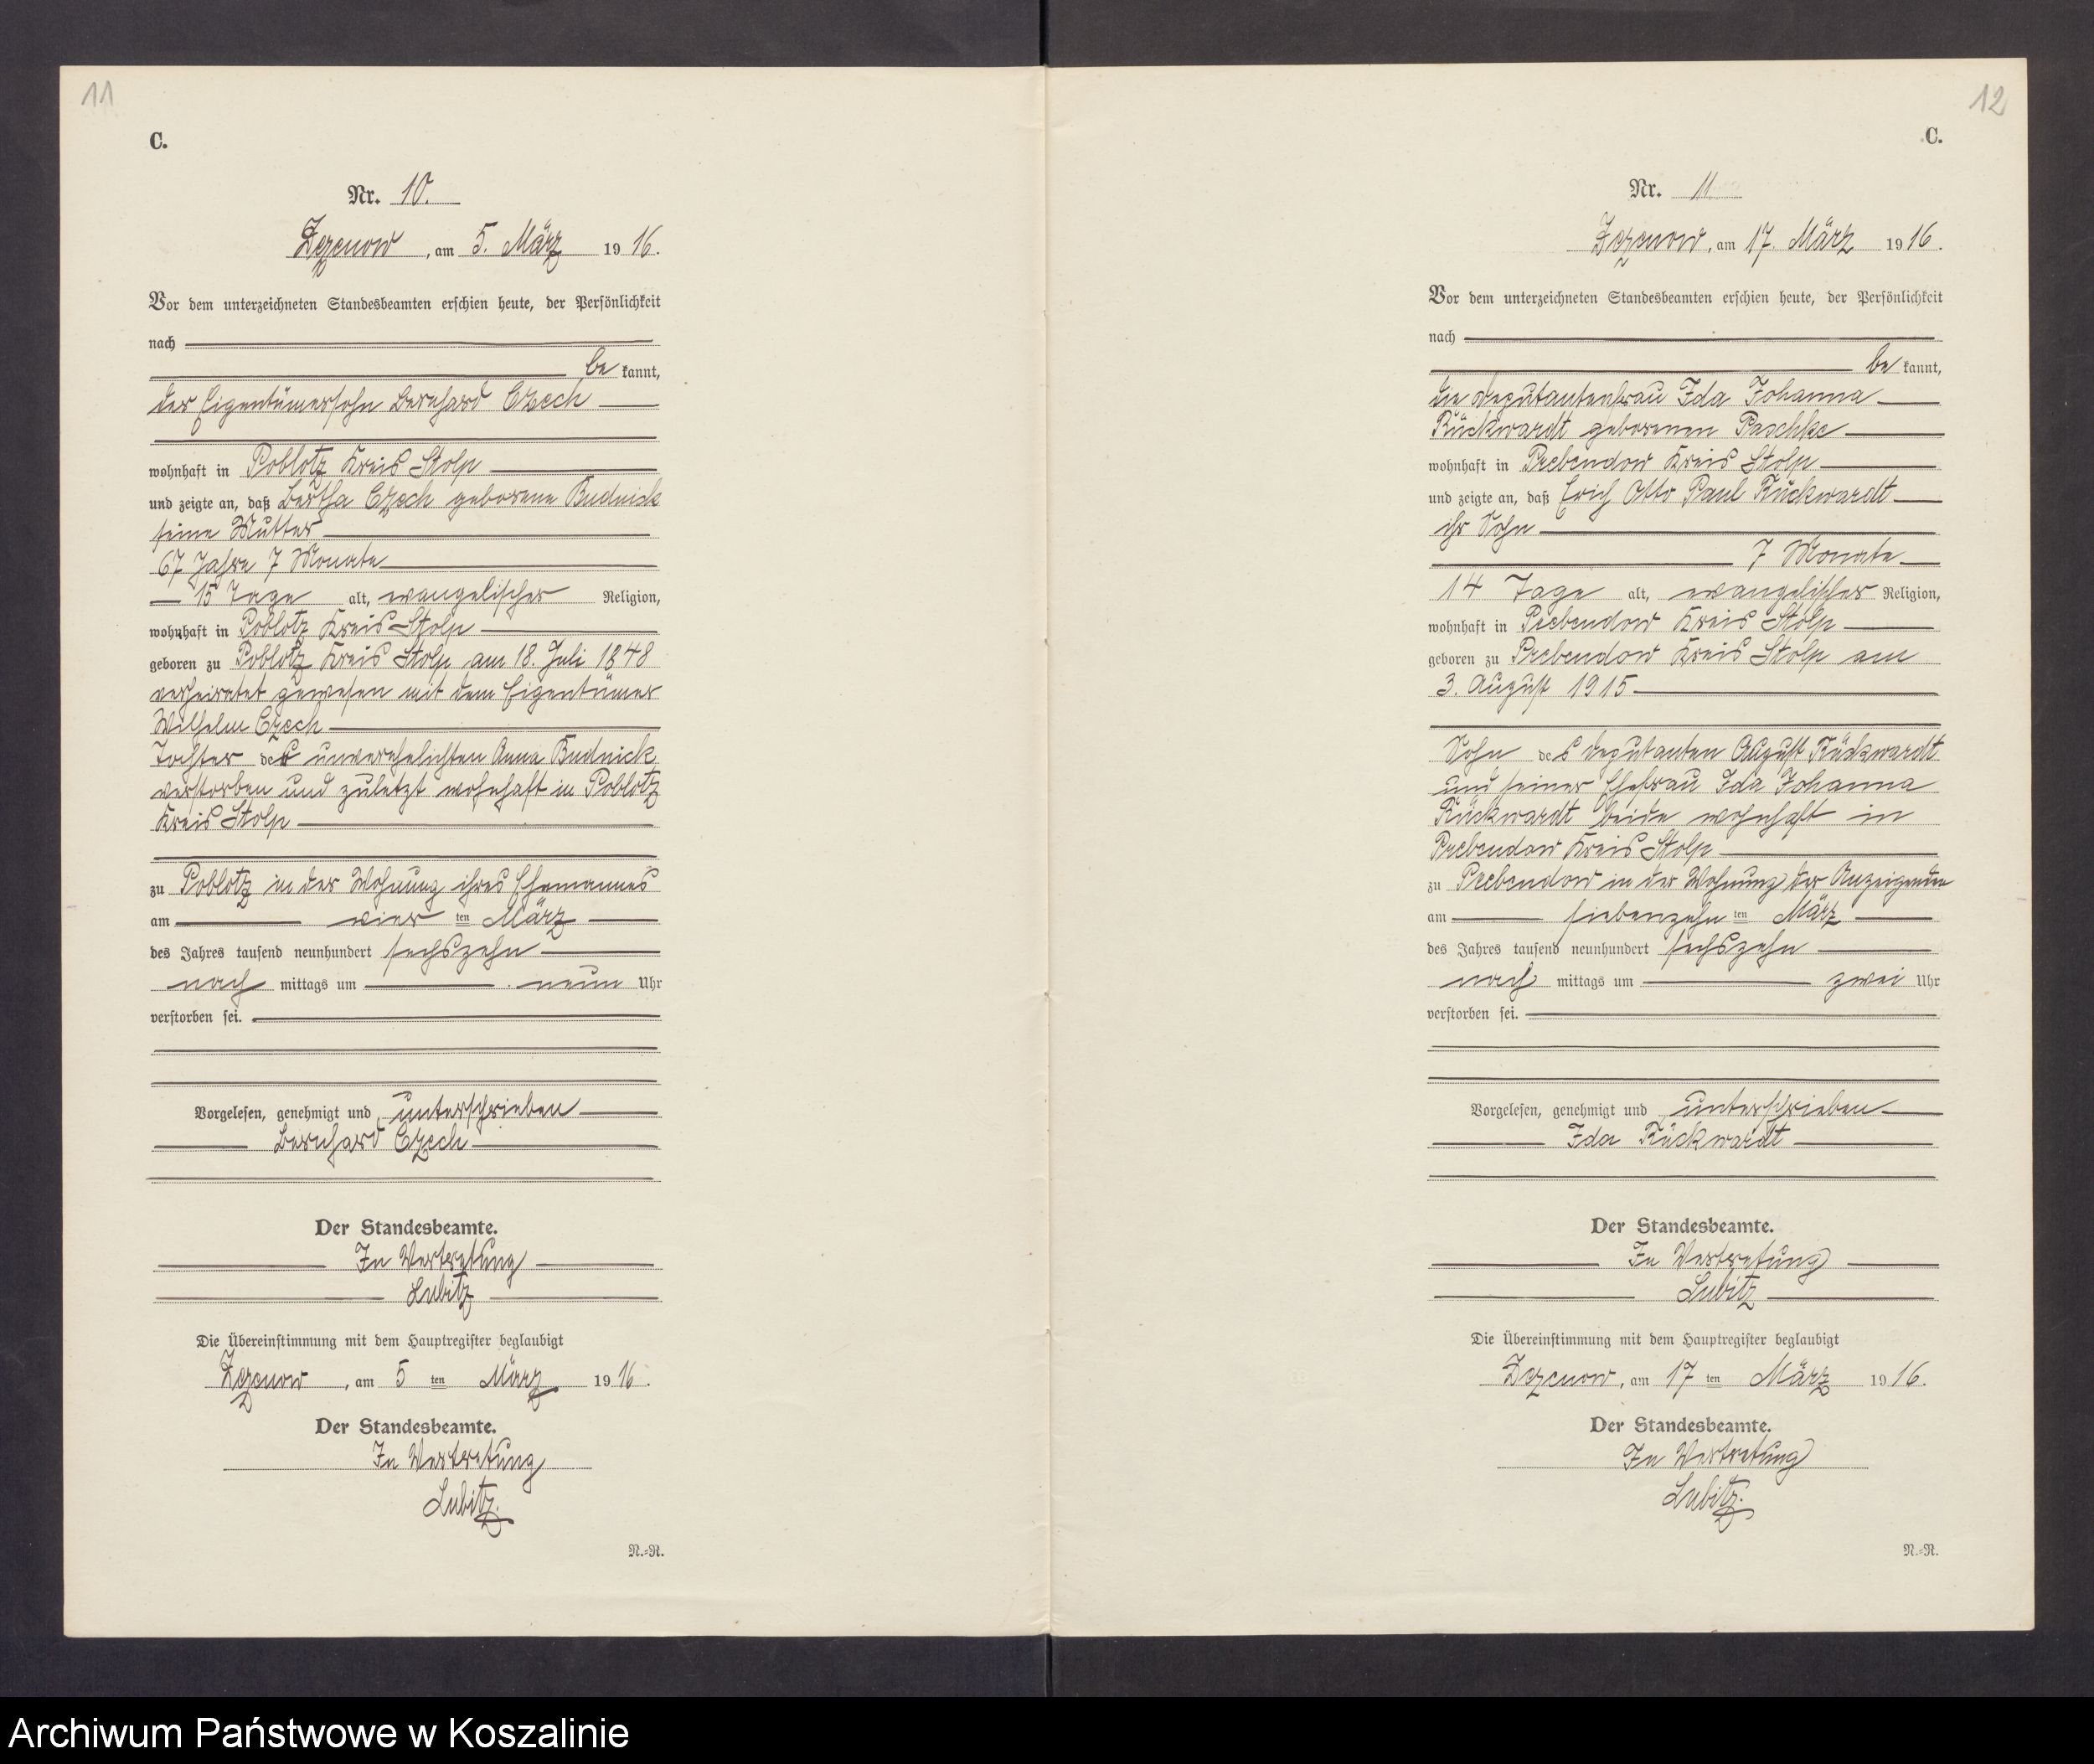 11
C.
Nr. 10.
Zezenow, am 5. März 1916.
Vor dem unterzeichneten Standesbeamten erschien heute, der Persönlichkeit
nach
bekannt,
der Eigentümersohn Bernhard Czech
wohnhaft in Poblotz Kreis Stolp
und zeigte an, daß Bertha Czech geborene Budnick
seine Mutter
67 Jahre 7 Monate
15 Tage alt, evangelischer Religion,
wohnhaft in Poblotz Kreis Stolp
geboren zu Poblotz Kreis Stolp am 18. Juli 1848
verheiratet gewesen mit dem Eigentümer
Wilhelm Czech
Tochter der unverehelichten Anna Budnick
verstorben und zuletzt wohnhaft in Poblotz
Kreis Stolp
zu Poblotz in der Wohnung ihres Ehemannes
am vier ten März
des Jahres tausend neunhundert sechszehn
nach mittags um neun Uhr
verstorben sei.
Vorgelesen, genehmigt und unterschrieben
Bernhard Czech
Der Standesbeamte.
In Vertretung
Lubitz
Die Übereinstimmung mit dem Hauptregister beglaubigt
Zezenow, am 5 ten März 1916.
Der Standesbeamte.
In Vertretung
Lubitz.
N.=R.
12
C.
Nr. 11
Zezenow, am 17. März 1916.
Vor dem unterzeichneten Standesbeamten erschien heute, der Persönlichkeit
nach
bekannt,
die Deputantenfrau Ida Johanna
Rückwardt geborenen Paschke
wohnhaft in Prebendow Kreis Stolp
und zeigte an, daß Erich Otto Paul Rückwardt
ihr Sohn
7 Monate
14 Tage alt, evangelischer Religion,
wohnhaft in Prebendow Kreis Stolp
geboren zu Prebendow Kreis Stolp am
3. August 1915
Sohn des Deputanten August Rückwardt
und seiner Ehefrau Ida Johanna
Rückwardt beide wohnhaft in
Prebendow Kreis Stolp
zu Prebendow in der Wohnung der Anzeigenden
am siebenzehn ten März
des Jahres tausend neunhundert sechszehn
nach mittags um zwei Uhr
verstorben sei.
Vorgelesen, genehmigt und unterschrieben
Ida Rückwardt
Der Standesbeamte.
In Vertretung
Lubitz
Die Übereinstimmung mit dem Hauptregister beglaubigt
Zezenow, am 17 ten März 1916.
Der Standesbeamte.
In Vertretung
Lubitz.
N.=R.
Archiwum Państwowe w Koszalinie